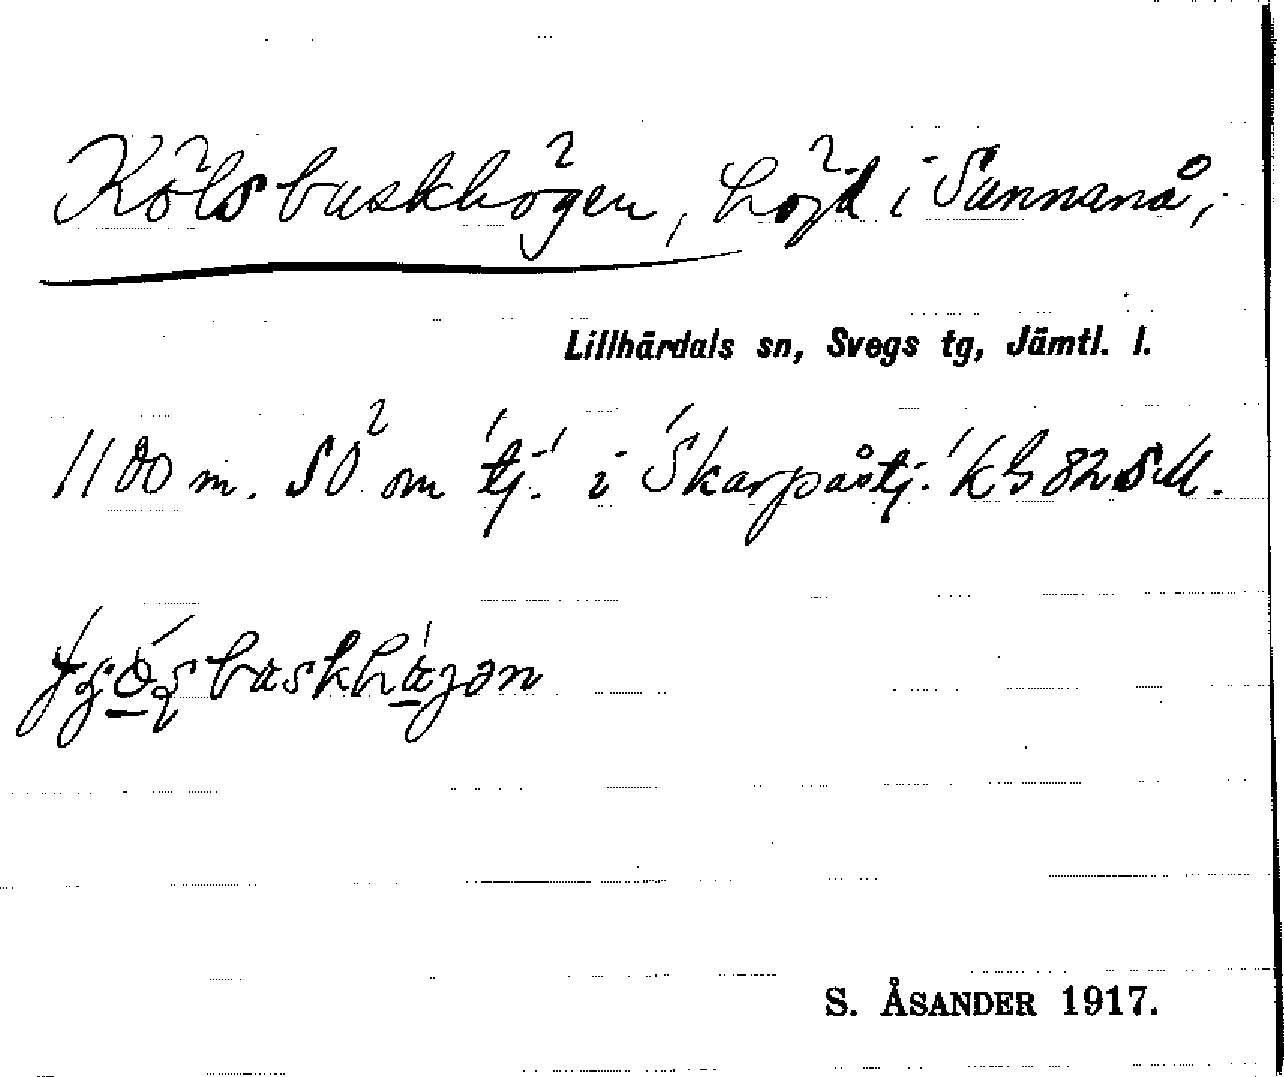 Kölsbuskhögen, höjd i Sunnanå,
Lillhärdals sn, Svegs tg, Jämtl. l.
1100 m. SO om 'tj.' i 'Skarpåstj.' kb 82 SM.
S. ÅSANDER 1917.